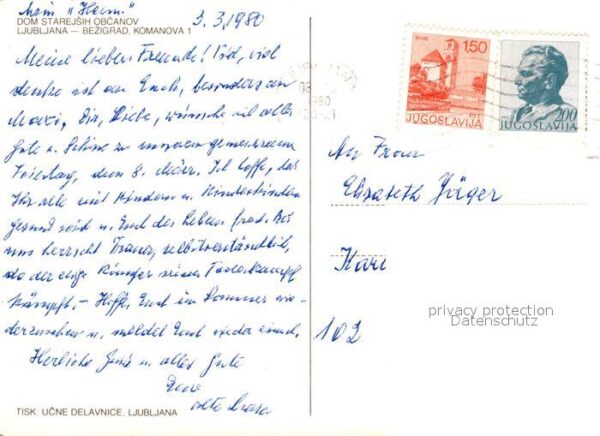 Mein "Heim"
3.3.1980
DOM STAREJŠIH OBČANOV
LJUBLJANA — BEŽIGRAD, KOMANOVA 1
Meine lieben Freunde! Viel, viel
denke ich an Euch, besonders an
Dir, Liebe, wünsche viel alles
Gute u. Schöne zu unserem gemeinsamen
Feiertag, dem 8. März. Ich hoffe, daß
Ihr alle mit Kindern u. Kindeskindern
gesund seid u. Euch des Lebens freut. Bei
uns herrscht Trauer, selbstverständlich,
da der ewige Kämpfer seinen Todeskampf
kämpft. - Hoffe, Euch im Sommer wie-
derzusehen u. meldet Euch wieder einmal.
Herzliche Grüße u. alles Gute
Eure
alte
TISK: UČNE DELAVNICE, LJUBLJANA
BIHAĆ
1,50
PTT
JUGOSLAVIJA
2,00
JUGOSLAVIJA
An Frau
Elisabeth Jäger
Karl
102
privacy protection
Datenschutz